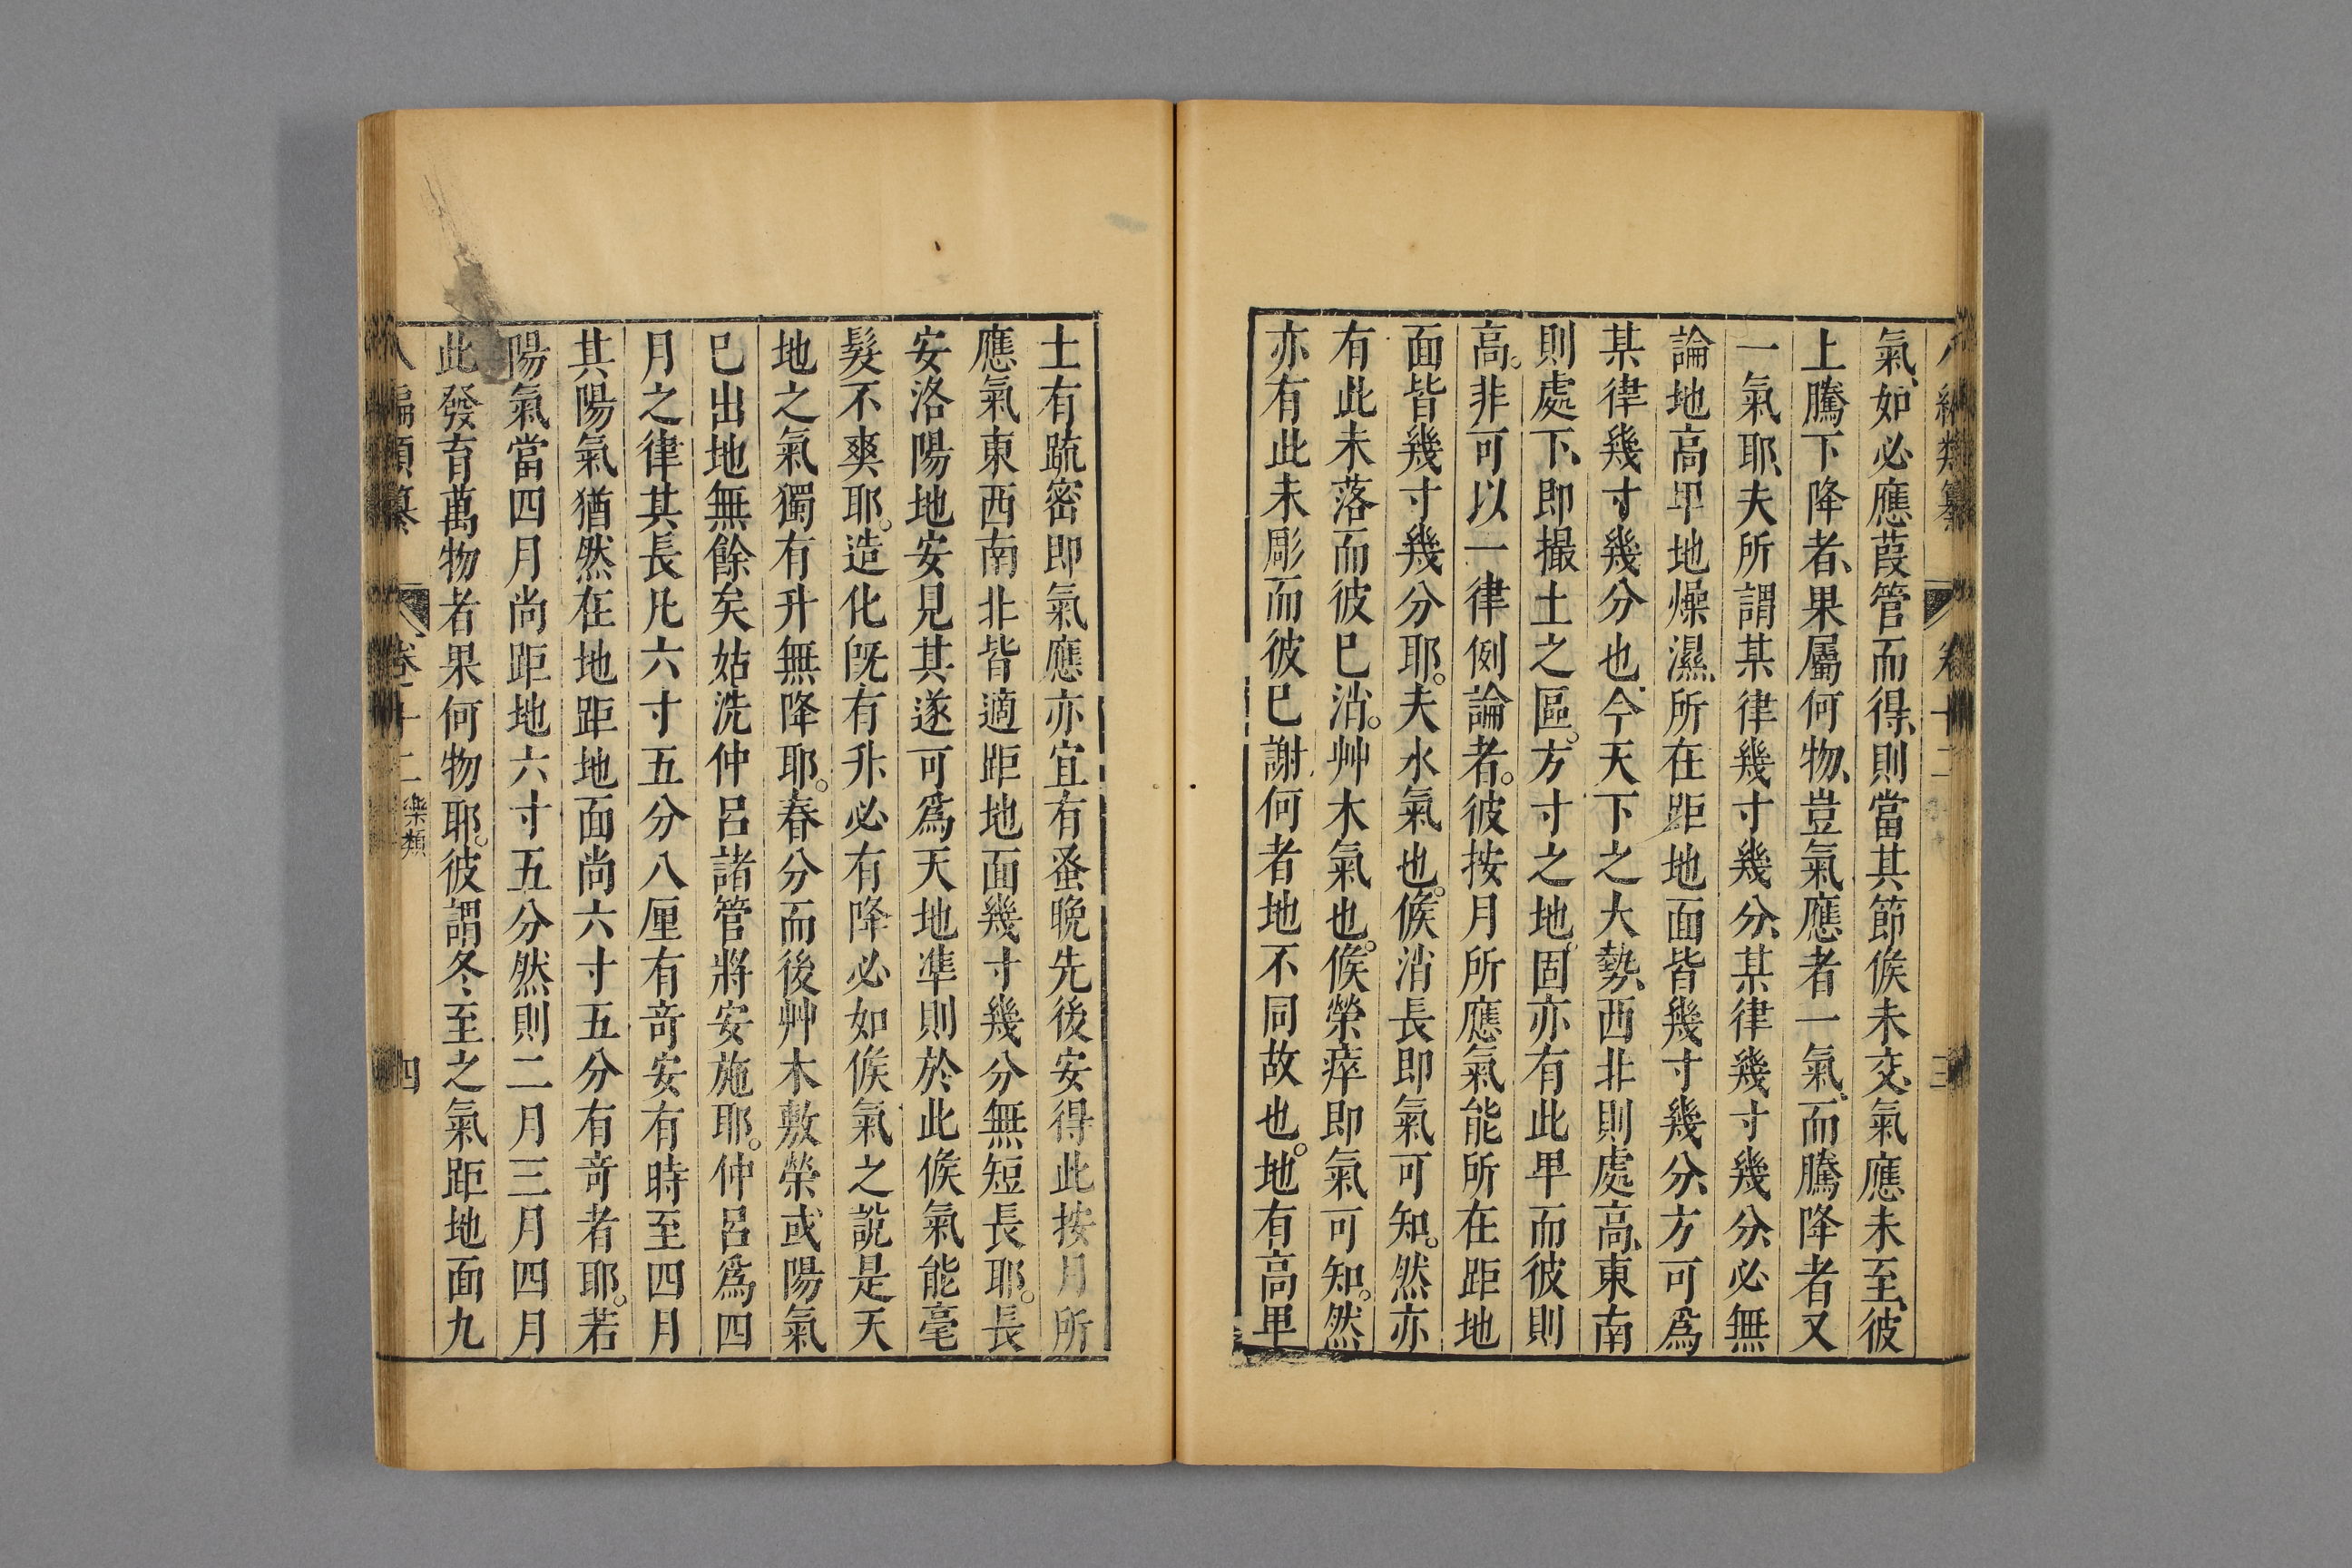 八編類纂 卷十二 三
氣、如必應葭管而得、則當其節候未交、氣應未至、彼
上騰下降者、果屬何物、豈氣應者一氣、而騰降者又
一氣耶、夫所謂某律幾寸幾分、某律幾寸幾分、必無
論地高卑地燥濕、所在距地面皆幾寸幾分、方可爲
某律幾寸幾分也、今天下之大勢、西北則處高、東南
則處下、即撮土之區。方寸之地。固亦有此卑而彼則
高。非可以一律例論者。彼按月所應氣能所在距地
面皆幾寸幾分耶。夫水氣也。候消長即氣可知。然亦
有此未落而彼已消。艸木氣也。候榮瘁即氣可知。然
亦有此未彫而彼已謝、何者地不同故也。地有高卑
土有疏密即氣應亦宜有蚤晚先後安得此按月所
應氣東西南北皆適距地面幾寸幾分無短長耶。長
安洛陽地安見其遂可爲天地準則於此候氣能毫
髮不爽耶。造化旣有升必有降必如候氣之說是天
地之氣獨有升無降耶。春分而後艸木敷榮或陽氣
已出地無餘矣姑洗仲呂諸管將安施耶。仲呂爲四
月之律其長凡六寸五分八厘有竒安有時至四月
其陽氣猶然在地距地面尚六寸五分有竒者耶。若
陽氣當四月尚距地六寸五分然則二月三月四月
此發育萬物者果何物耶。彼謂冬至之氣距地面九
八編類纂 卷十二 樂類 四